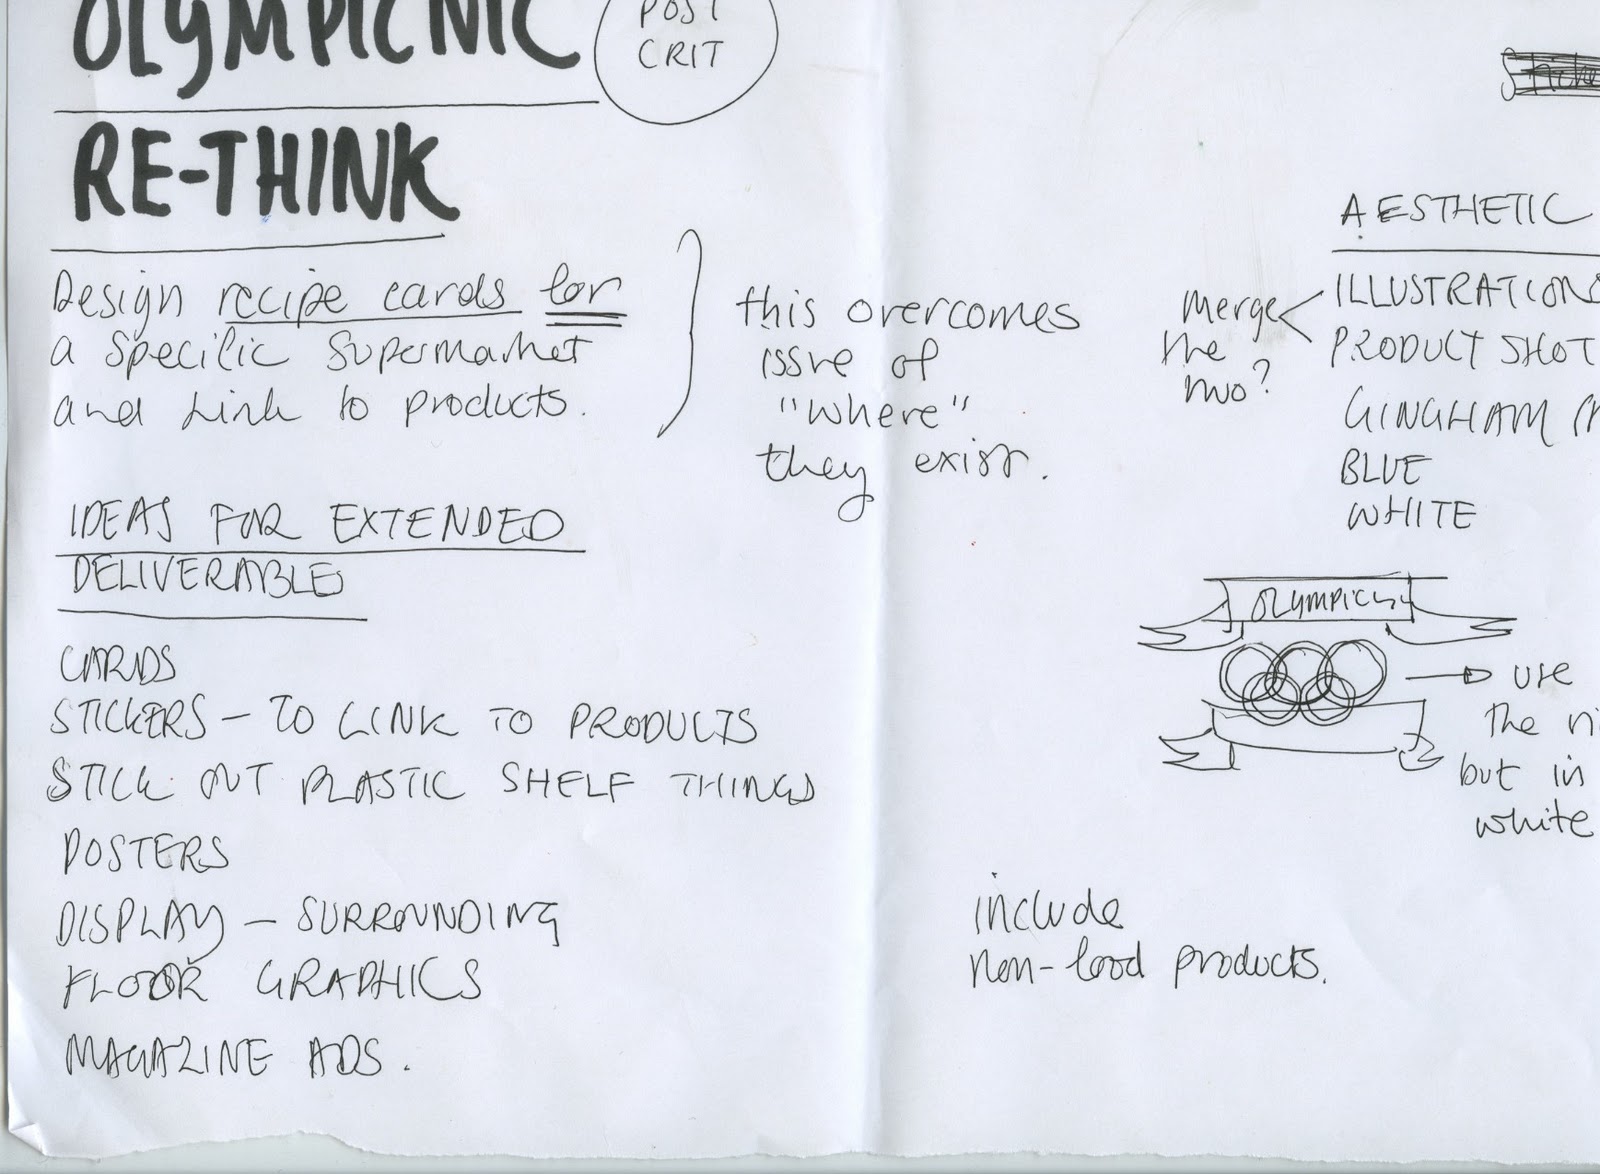 OLYMPICNIC
POST
CRIT
RE-THINK
Design recipe cards for
a specific supermarket
and link to products.
this overcomes
issue of
"where"
they exist.
IDEAS FOR EXTENDED
DELIVERABLES
CARDS
STICKERS - TO LINK TO PRODUCTS
STICK OUT PLASTIC SHELF THINGS
POSTERS
DISPLAY - SURROUNDING
FLOOR GRAPHICS
MAGAZINE ADS.
AESTHETIC
merge
the
two?
ILLUSTRATIONS
PRODUCT SHOT
GINGHAM
BLUE
WHITE
→ use
the
but in
white
include
non-food products.